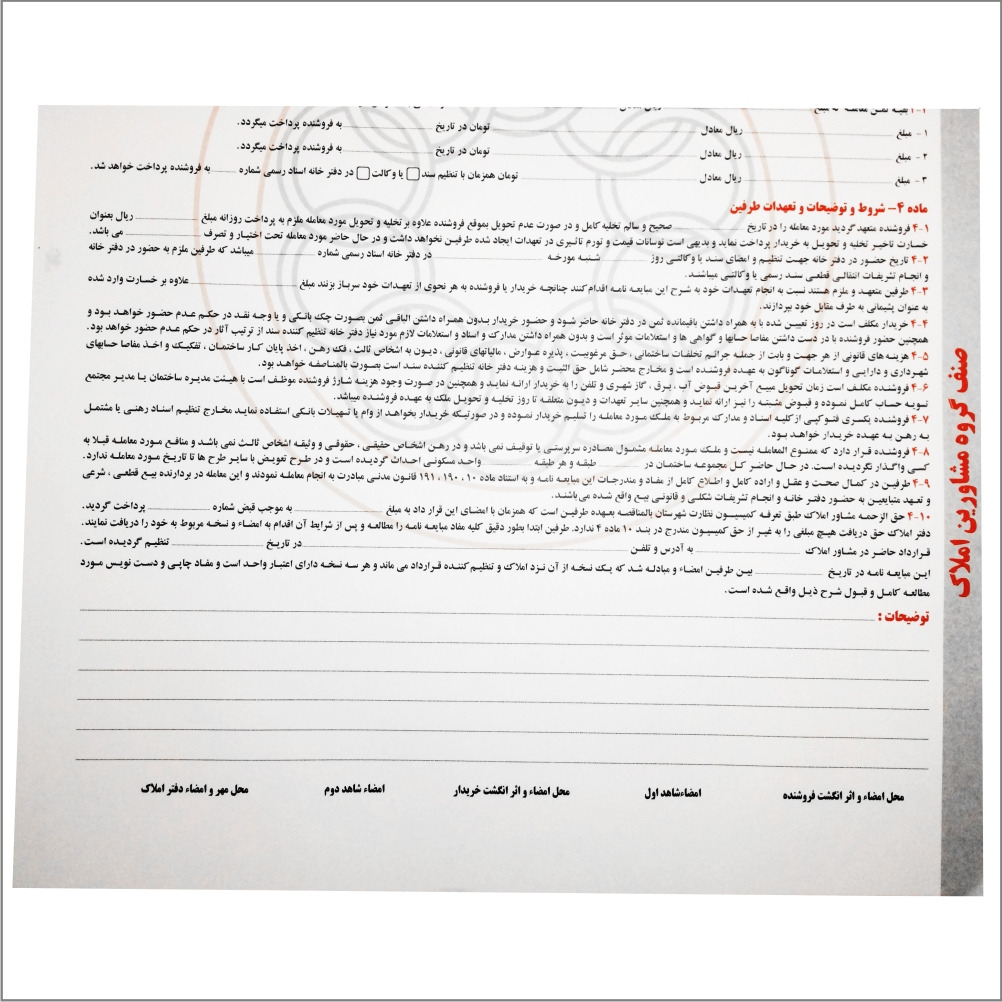 مبلغ ریال معادل تومان در تاریخ به فروشنده پرداخت میگردد.
۱ - مبلغ ریال معادل تومان در تاریخ به فروشنده پرداخت میگردد.
۲ - مبلغ ریال معادل تومان همزمان با تنظیم سند یا وکالت در دفتر خانه اسناد رسمی شماره به فروشنده پرداخت خواهد شد.
۳ - مبلغ ریال معادل
ماده ۴- شروط و توضیحات و تعهدات طرفین
۴-۱ فروشنده متعهد گردید مورد معامله را در تاریخ صحیح و سالم تخلیه کامل و در صورت عدم تحویل بموقع فروشنده علاوه بر تخلیه و تحویل مورد معامله ملزم به پرداخت روزانه مبلغ ریال بعنوان
خسارت تاخیر تخلیه و تحویل به خریدار پرداخت نماید و بدیهی است نوسانات قیمت و تورم تاثیری در تعهدات ایجاد شده طرفین نخواهد داشت و در حال حاضر مورد معامله تحت اختیار و تصرف می باشد.
۴-۲ تاریخ حضور در دفتر خانه جهت تنظیم و امضای سند یا وکالتی روز شنبه مورخه در دفتر خانه اسناد رسمی شماره میباشد که طرفین ملزم به حضور در دفتر خانه
و انجام تشریفات انتقالی قطعی سند رسمی یا وکالتی میباشند.
۴-۳ طرفین متعهد و ملزم هستند نسبت به انجام تعهدات خود به شرح این مبایعه نامه اقدام کنند چنانچه خریدار یا فروشنده به هر نحوی از تعهدات خود سرباز بزنند مبلغ علاوه بر خسارت وارد شده
به عنوان پشیمانی به طرف مقابل خود بپردازند.
۴-۴ خریدار مکلف است در روز تعیین شده با به همراه داشتن باقیمانده ثمن در دفتر خانه حاضر شود و حضور خریدار بدون همراه داشتن الباقی ثمن بصورت چک بانکی و یا وجه نقد در حکم عدم حضور خواهد بود و
همچنین حضور فروشنده با در دست داشتن مفاصا حسابها و گواهی ها و استعلامات موثر است و بدون همراه داشتن مدارک و اسناد و استعلامات لازم مورد نیاز دفتر خانه تنظیم کننده سند از ترتیب آثار در حکم عدم حضور خواهد بود.
۴-۵ هزینه های قانونی از هر جهت و بابت از جمله جرائم تخلفات ساختمانی ، حق مرغوبیت ، پذیره عوارض ، مالیاتهای قانونی ، دیون به اشخاص ثالث ، فک رهن ، اخذ پایان کار ساختمان ، تفکیک و اخذ مفاصا حسابهای
شهرداری و دارایی و استعلامات گوناگون به عهده فروشنده است و مخارج محضر شامل حق الثبت و هزینه دفتر خانه تنظیم کننده سند است بصورت بالمناصفه خواهد بود.
۴-۶ فروشنده مکلف است زمان تحویل مبیع آخرین قبوض آب ، برق ، گاز شهری و تلفن را به خریدار ارائه نماید و همچنین در صورت وجود هزینه شارژ فروشنده موظف است با هیئت مدیره ساختمان یا مدیر مجتمع
تسویه حساب کامل نموده و قبوض مثبته را نیز ارائه نماید و همچنین سایر تعهدات و دیون متعلقه تا روز تخلیه و تحویل ملک به عهده فروشنده میباشد.
۴-۷ فروشنده یکسری فتوکپی از کلیه اسناد و مدارک مربوط به ملک مورد معامله را تسلیم خریدار نموده و در صورتیکه خریدار بخواهد از وام یا تسهیلات بانکی استفاده نماید مخارج تنظیم اسناد رهنی یا مشتمل
به رهن به عهده خریدار خواهد بود.
۴-۸ فروشنده اقرار دارد که ممنوع المعامله نیست و ملک مورد معامله مشمول مصادره سرپرستی یا توقیف نمی باشد و در رهن اشخاص حقیقی ، حقوقی و وثیقه اشخاص ثالث نمی باشد و منافع مورد معامله قبلا به
کسی واگذار نگردیده است. در حال حاضر کل مجموعه ساختمان در طبقه و هر طبقه واحد مسکونی احداث گردیده است و در طرح تعویض با سایر طرح ها تا تاریخ مورد معامله ندارد.
۴-۹ طرفین در کمال صحت و عقل و اراده کامل و اطلاع کامل از مفاد و مندرجات این مبایعه نامه و به استناد ماده ۱۰ ، ۱۹۰ ، ۱۹۱ قانون مدنی مبادرت به انجام معامله نمودند و این معامله در بردارنده بیع قطعی ، شرعی
و تعهد متبایعین به حضور دفتر خانه و انجام تشریفات شکلی و قانونی بیع واقع شده می باشند.
۴-۱۰ حق الزحمه مشاور املاک طبق تعرفه کمیسیون نظارت شهرستان بالمناقصه بعهده طرفین است که همزمان با امضای این قرار داد به مبلغ به موجب قبض شماره پرداخت گردید.
دفتر املاک حق دریافت هیچ مبلغی را به غیر از حق کمیسیون مندرج در بند ۱۰ ماده ۴ ندارد. طرفین ابتدا بطور دقیق کلیه مفاد مبایعه نامه را مطالعه و پس از شرایط آن اقدام به امضاء و نسخه مربوط به خود را دریافت نمایند.
قرارداد حاضر در مشاور املاک به آدرس و تلفن در تاریخ تنظیم گردیده است.
این مبایعه نامه در تاریخ بین طرفین امضاء و مبادله شد که یک نسخه از آن نزد املاک و تنظیم کننده قرارداد می ماند و هر سه نسخه دارای اعتبار واحد است و مفاد چاپی و دست نویس مورد
مطالعه کامل و قبول شرح ذیل واقع شده است.
توضیحات :
محل امضاء و اثر انگشت فروشنده امضاءشاهد اول محل امضاء و اثر انگشت خریدار امضاء شاهد دوم محل مهر و امضاء دفتر املاک
صنف گروه مشاورین املاک